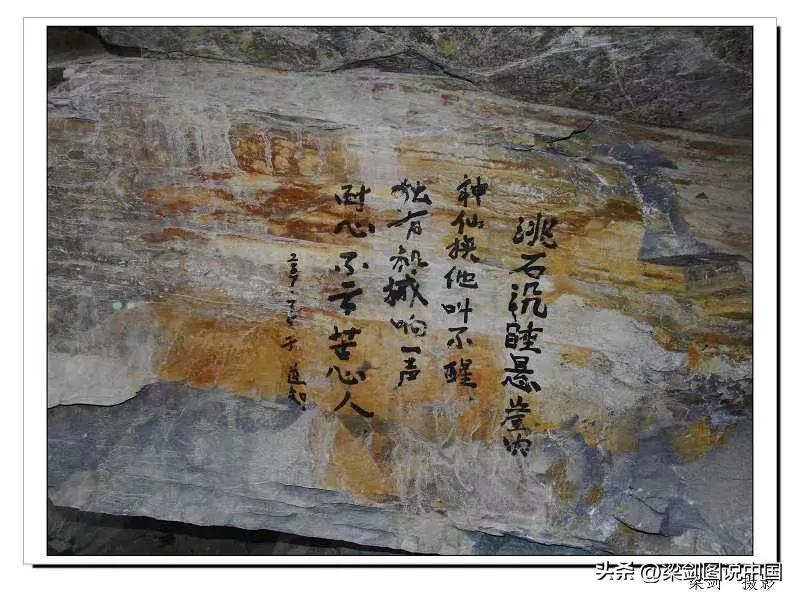 洮石沉睡悬崖内
神仙换他叫不醒，
独有机械响一声
耐心不亏苦心人，
头条 @梁剑图说中国
梁剑 摄影